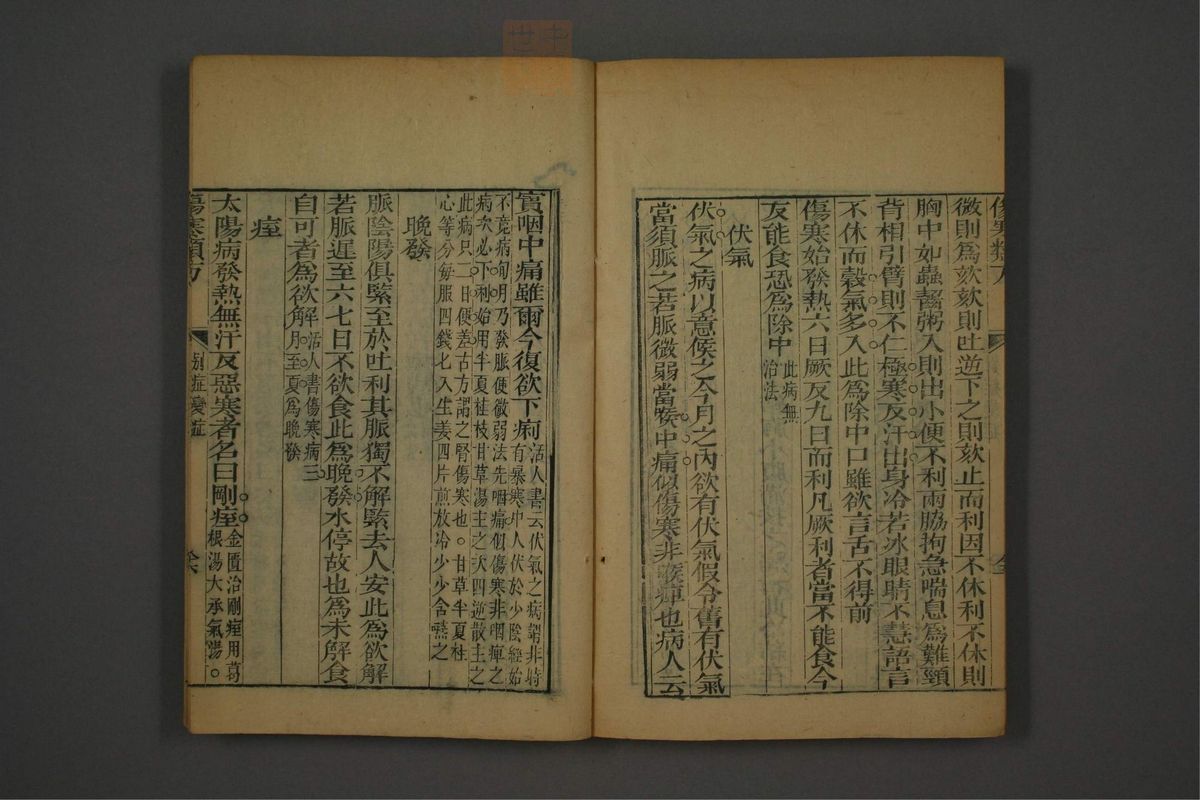 傷寒類方
微則爲欬欬則吐逆下之則欬止而利因不休利不休則
胸中如蟲齧粥入則出小便不利兩脇拘急喘息爲難頸
背相引臂則不仁極寒反汗出身冷若冰眼睛不慧語言
不休而穀氣多入此爲除中口雖欲言舌不得前
傷寒始發熱六日厥反九日而利凡厥利者當不能食今
反能食恐爲除中此病無治法
伏氣
伏氣之病以意候之今月之內欲有伏氣假令舊有伏氣
當須脈之若脈微弱當喉中痛似傷寒非喉痺也病人云
實咽中痛雖爾今復欲下痢活人書云伏氣之病謂非時有暴寒中人伏於少陰經始
不覺病旬月乃發脈便微弱法先咽痛似傷寒非咽痺之病次必下利始用半夏桂枝甘草湯主之次四逆散主之
此病只一日便差古方謂之腎傷寒也。甘草半夏桂心等分每服四錢匕入生姜四片煎放冷少少含嚥之
晚發
脈陰陽俱緊至於吐利其脈獨不解緊去人安此爲欲解
若脈遲至六七日不欲食此爲晚發水停故也爲未解食
自可者爲欲解活人書傷寒病三月至夏爲晚發
痙
太陽病發熱無汗反惡寒者名曰剛痙金匱治剛痙用葛根湯大承氣湯。
傷寒類方
別症變症